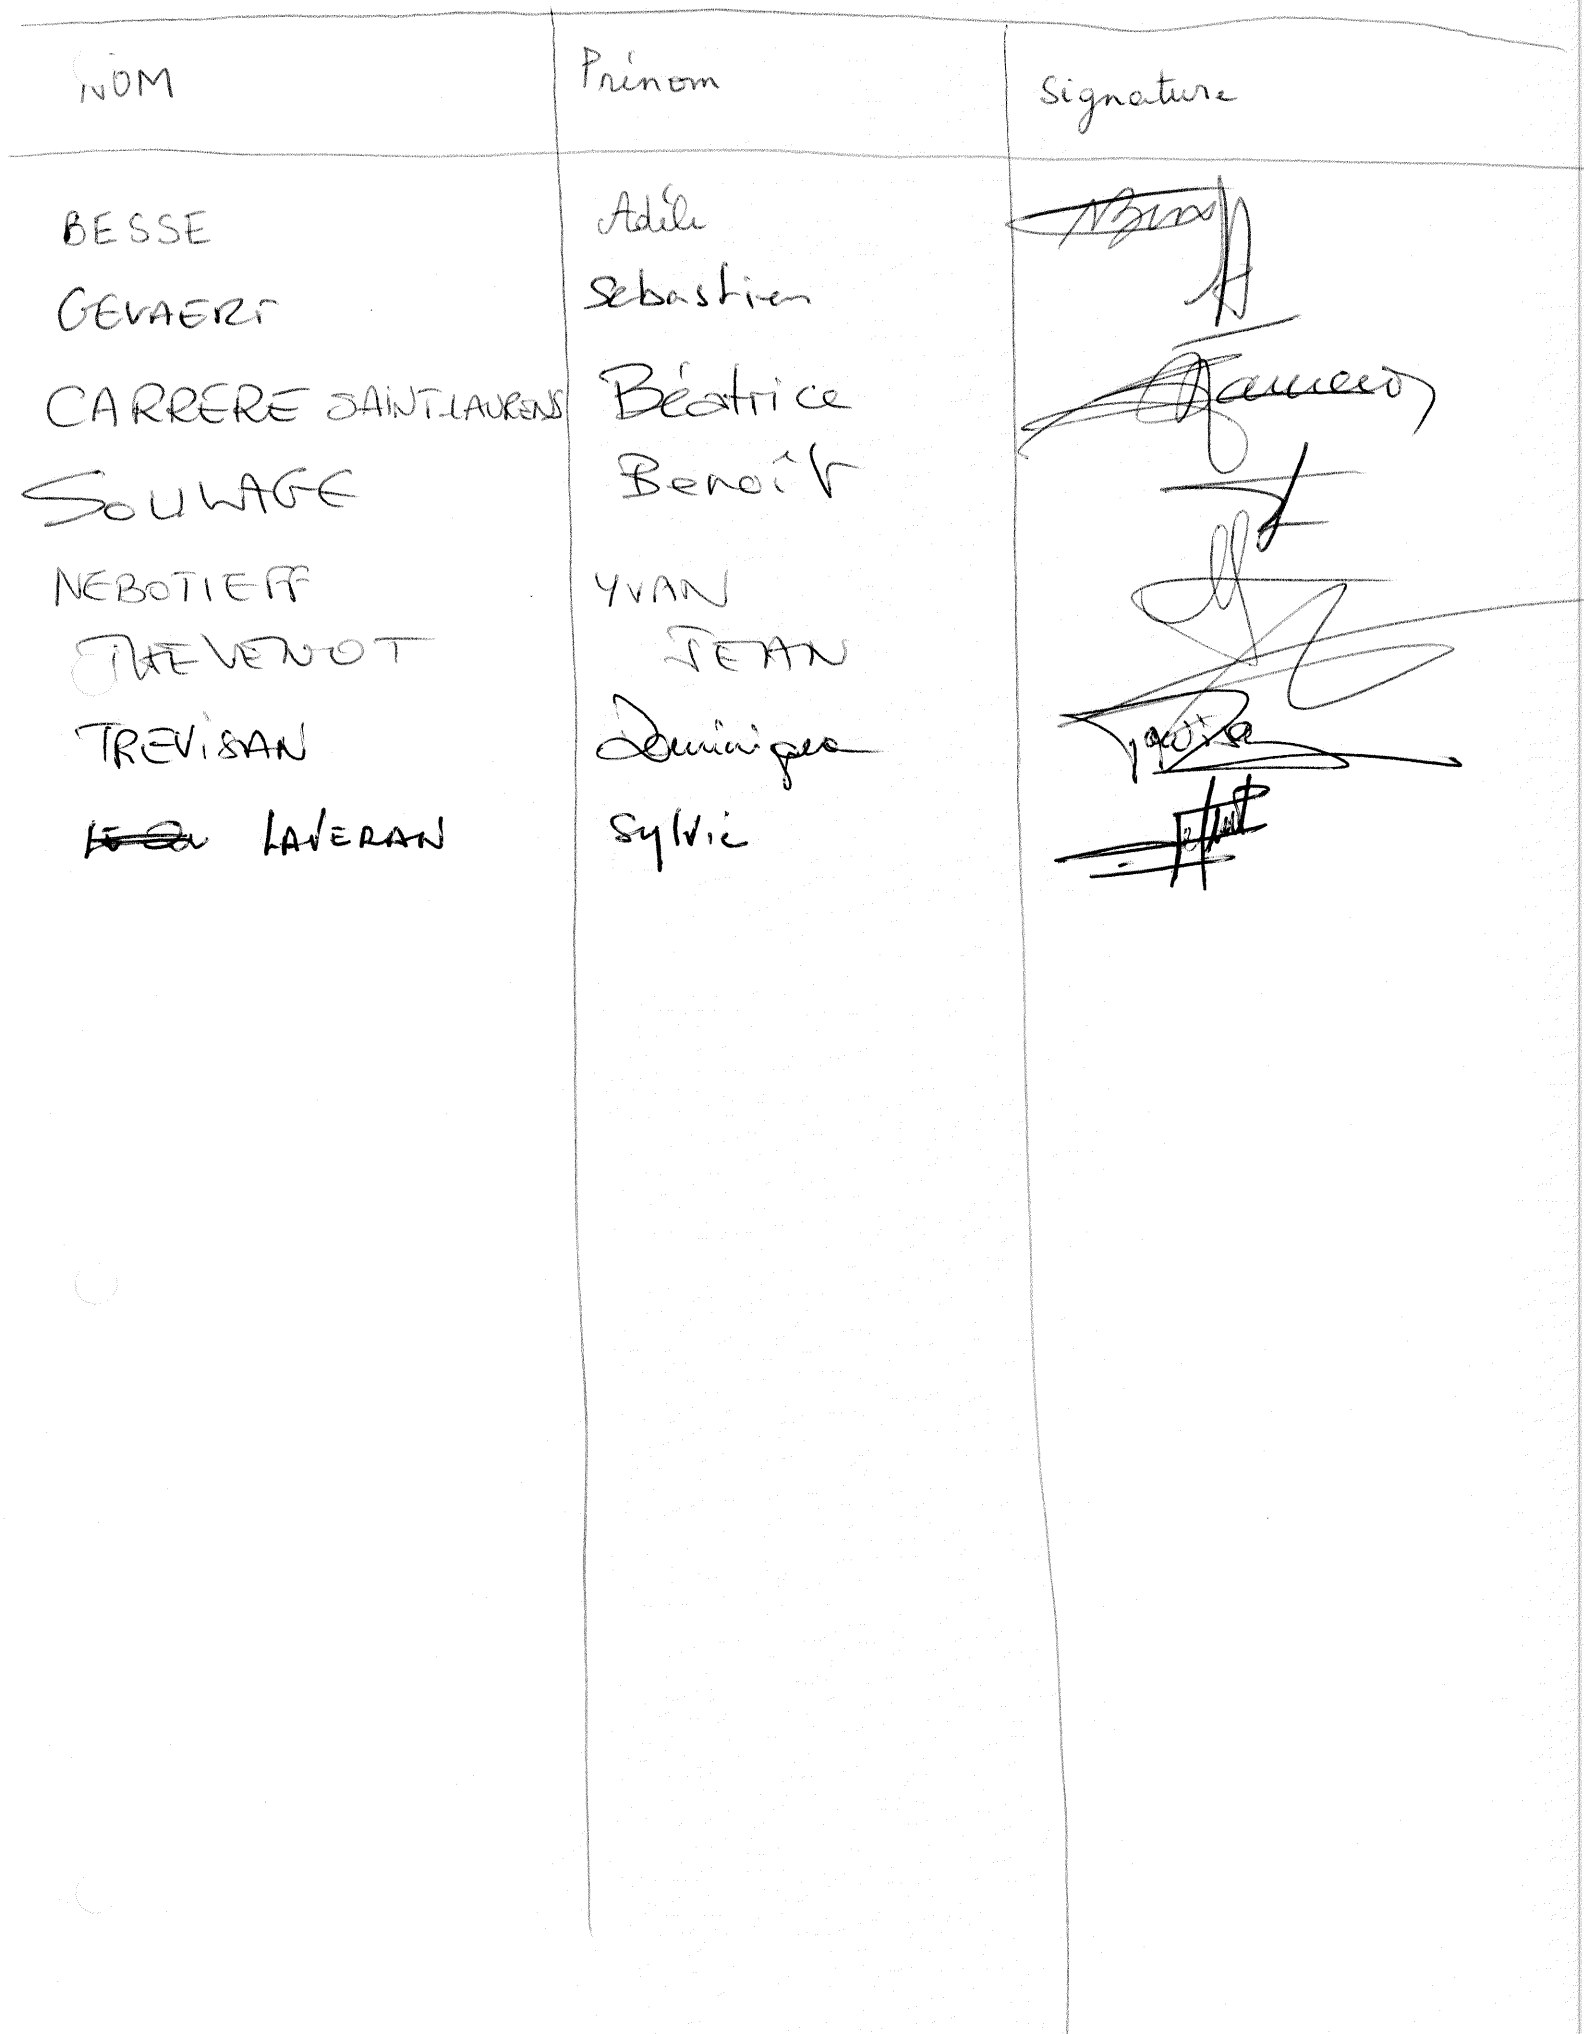 NOM Prénom Signature
BESSE Adèle
GEVAERT Sébastien
CARRERE SAINT-LAURENS Béatrice
SOULAGE Benoît
NEBOTIEFF YVAN
THEVENOT JEAN
TREVISAN Dominique
LAVERAN Sylvie